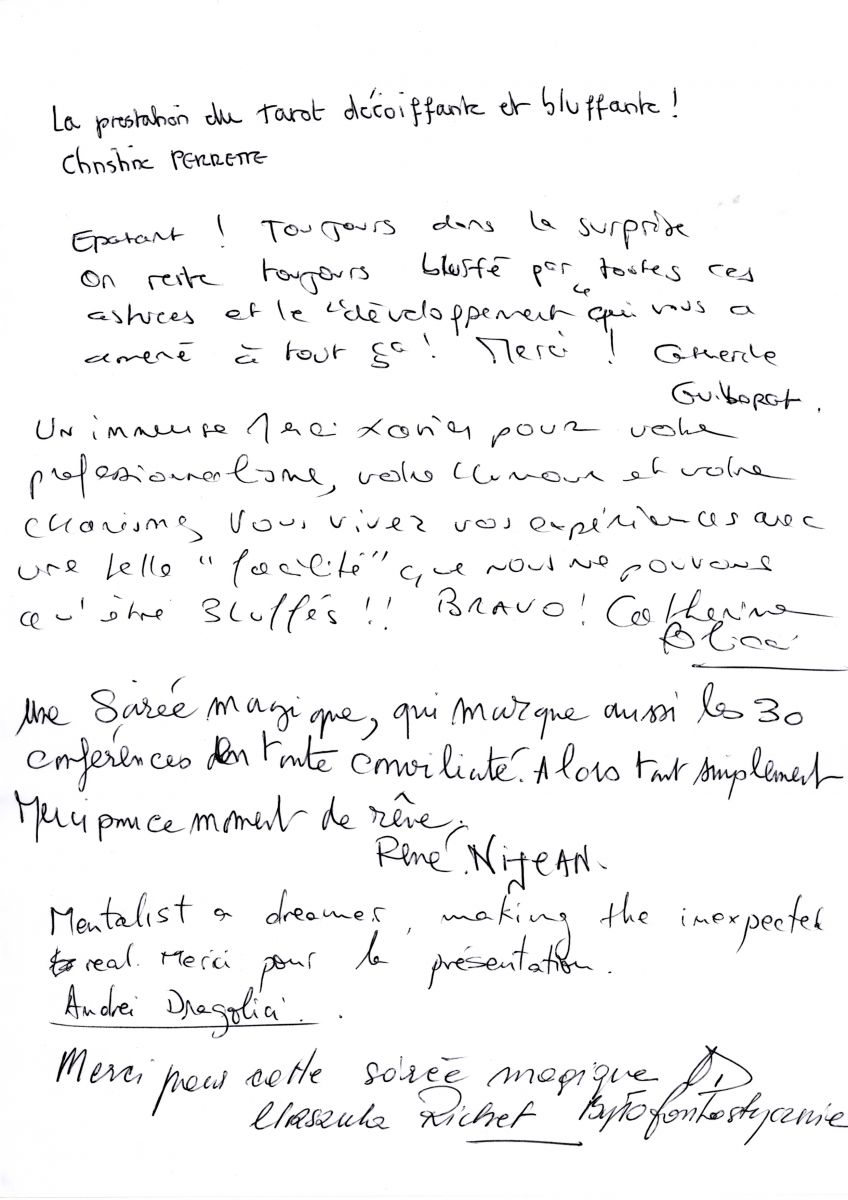 La prestation du tarot décoiffante et bluffante !
Christine PERRETTE
Epatant ! Toujours dans la surprise
On reste toujours bluffé par toutes ces
astuces et le "développement" qui vous a
amené à tout ça ! Merci ! Catherine
Un immense Merci Xavier pour votre
professionnalisme, votre Humour et votre
charisme, Vous vivez vos expériences avec
une telle "facilité" que nous ne pouvons
qu'être Bluffés !! BRAVO ! Catherine
Une Soirée magique, qui marque aussi les 30
conférences en toute conviliaté. Alors tout simplement
Merci pour ce moment de rêve.
René NIJEAN.
Mentalist a dreamer, making the inexpected
real. Merci pour la présentation.
Andrei Dragolici.
Merci pour cette soirée magique
Urszula Richet Było fantastycznie